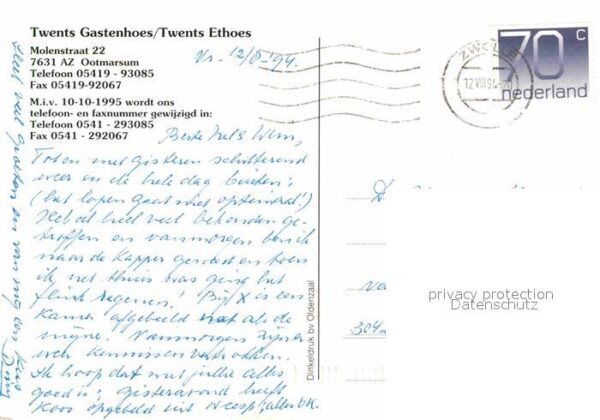 Twents Gastenhoes/Twents Ethoes
Molenstraat 22
7631 AZ Ootmarsum
Telefoon 05419 - 93085
Fax 05419-92067
M.i.v. 10-10-1995 wordt ons
telefoon- en faxnummer gewijzigd in:
Telefoon 0541 - 293085
Fax 0541 - 292067
Vr. 12/8-'94.
Beste Wim,
Tot en met gisteren schitterend
weer en de hele dag buiten;
(het lopen gaat met optimaal!)
Heb al heel veel bekenden ge-
troffen en vanmorgen ben ik
naar de kapper geweest en toen
ik net thuis was ging het
flink regenen! Bij X is een
kamer afgebeeld net als de
mijne. Vanmorgen zijn
weer kennissen vertrokken.
Ik hoop dat met jullie alles
goed is; gisteravond heeft
Koos opgebeld uit Weesp; alles ok.
Heel veel groeten en van mij een kus
Dinkeldruk bv Oldenzaal
ZWOLLE
12 VIII 94
70 c
nederland
privacy protection
Datenschutz